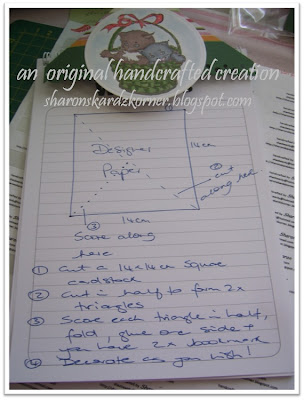 an original handcrafted creation
sharonskardzkorner.blogspot.com
Designer
Paper
14cm
② cut
along
14cm
③
Score along
here
① Cut a 14x14cm square
cardstock
② Cut in half to form 2x
triangles
③ Score each triangle in half,
fold, glue one side +
you have 2x bookmark
④ Decorate as you wish!